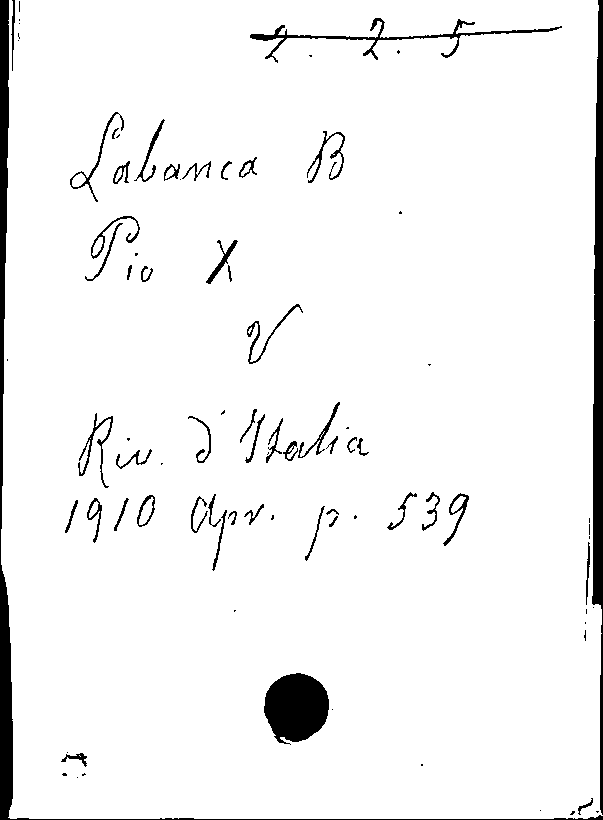 2. 2. 5
Labanca B
Pio X
V
Riv. d'Italia
1910 Apr. p. 539